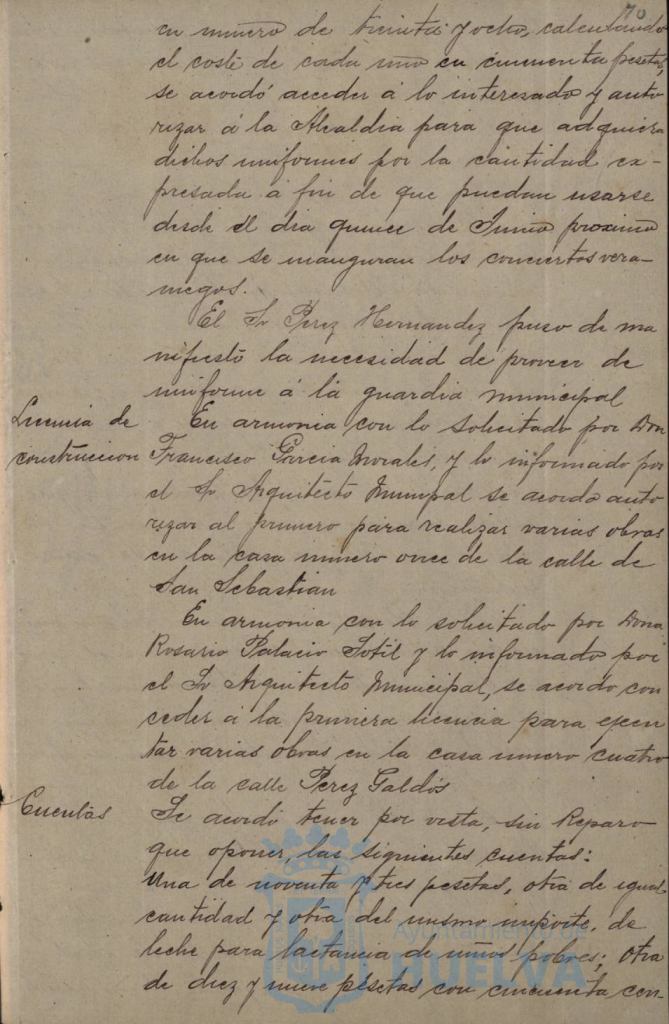 70
en número de treinta y ocho, calculando
el coste de cada uno en cincuenta pesetas,
se acordó acceder á lo interesado y auto
rizar á la Alcaldia para que adquiera
dichos uniformes por la cantidad ex-
presada a fin de que puedan usarse
desde el dia quince de Junio proximo
en que se inauguran los conciertos vera-
niegos.
El Sr Perez Hernandez puso de ma
nifiesto la necesidad de proveer de
uniforme á la guardia municipal
Licencia de
construccion
En armonia con lo solicitado por Don
Francisco Garcia Morales, y lo informado por
el Sr Arquitecto Municipal se acordo auto
rizar al primero para realizar varias obras
en la casa numero once de la calle de
San Sebastian
En armonia con lo solicitado por Dona
Rosario Palacio Sotil y lo informado por
el Sr Arquitecto Municipal, se acordo con
ceder á la primera licencia para ejecu
tar varias obras en la casa numero cuatro
de la calle Perez Galdós
Cuentas
Se acordó tener por vista, sin Reparo
que oponer, las siguientes cuentas:
Una de noventa y tres pesetas, otra de igual
cantidad y otra del mismo importe, de
leche para lactancia de niños pobres; otra
de diez y nueve pesetas con cincuenta cen-
Ayuntamiento de
HUELVA